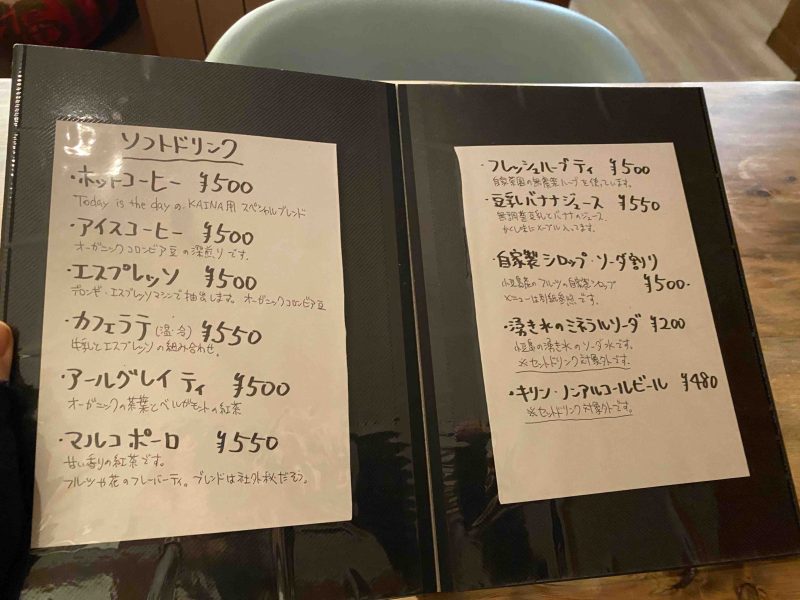 ソフトドリンク
・ホットコーヒー ¥500
Today is the dayの KAINA用 スペシャルブレンド
・アイスコーヒー ¥500
オーガニックコロンビア豆の深煎りです。
・エスプレッソ ¥500
デロンギ・エスプレッソマシンで抽出します。オーガニックコロンビア豆
・カフェラテ(温・冷) ¥550
牛乳とエスプレッソの組み合わせ。
・アールグレイ ティ ¥500
オーガニックの茶葉とベルガモットの紅茶
・マルコ ポーロ ¥550
甘い香りの紅茶です。
フルツや花のフレーバーティ。ブレンドは社外秘だそう。
・フレッシュハーブ ティ ¥500
自家菜園の無農薬ハーブを使っています。
・豆乳バナナジュース ¥550
無調整豆乳とバナナのジュース。
かくし味にメープル入ってます。
・自家製シロップ・ソーダ割り
小豆島産のフルーツの自家製シロップ ¥500-
メニューは別紙参照です。
・湧き水のミネラルソーダ ¥200
小豆島の湧き水のソーダ水です。
※セットドリンク対象外です。
・キリン・ノンアルコールビール ¥480
※セットドリンク対象外です。